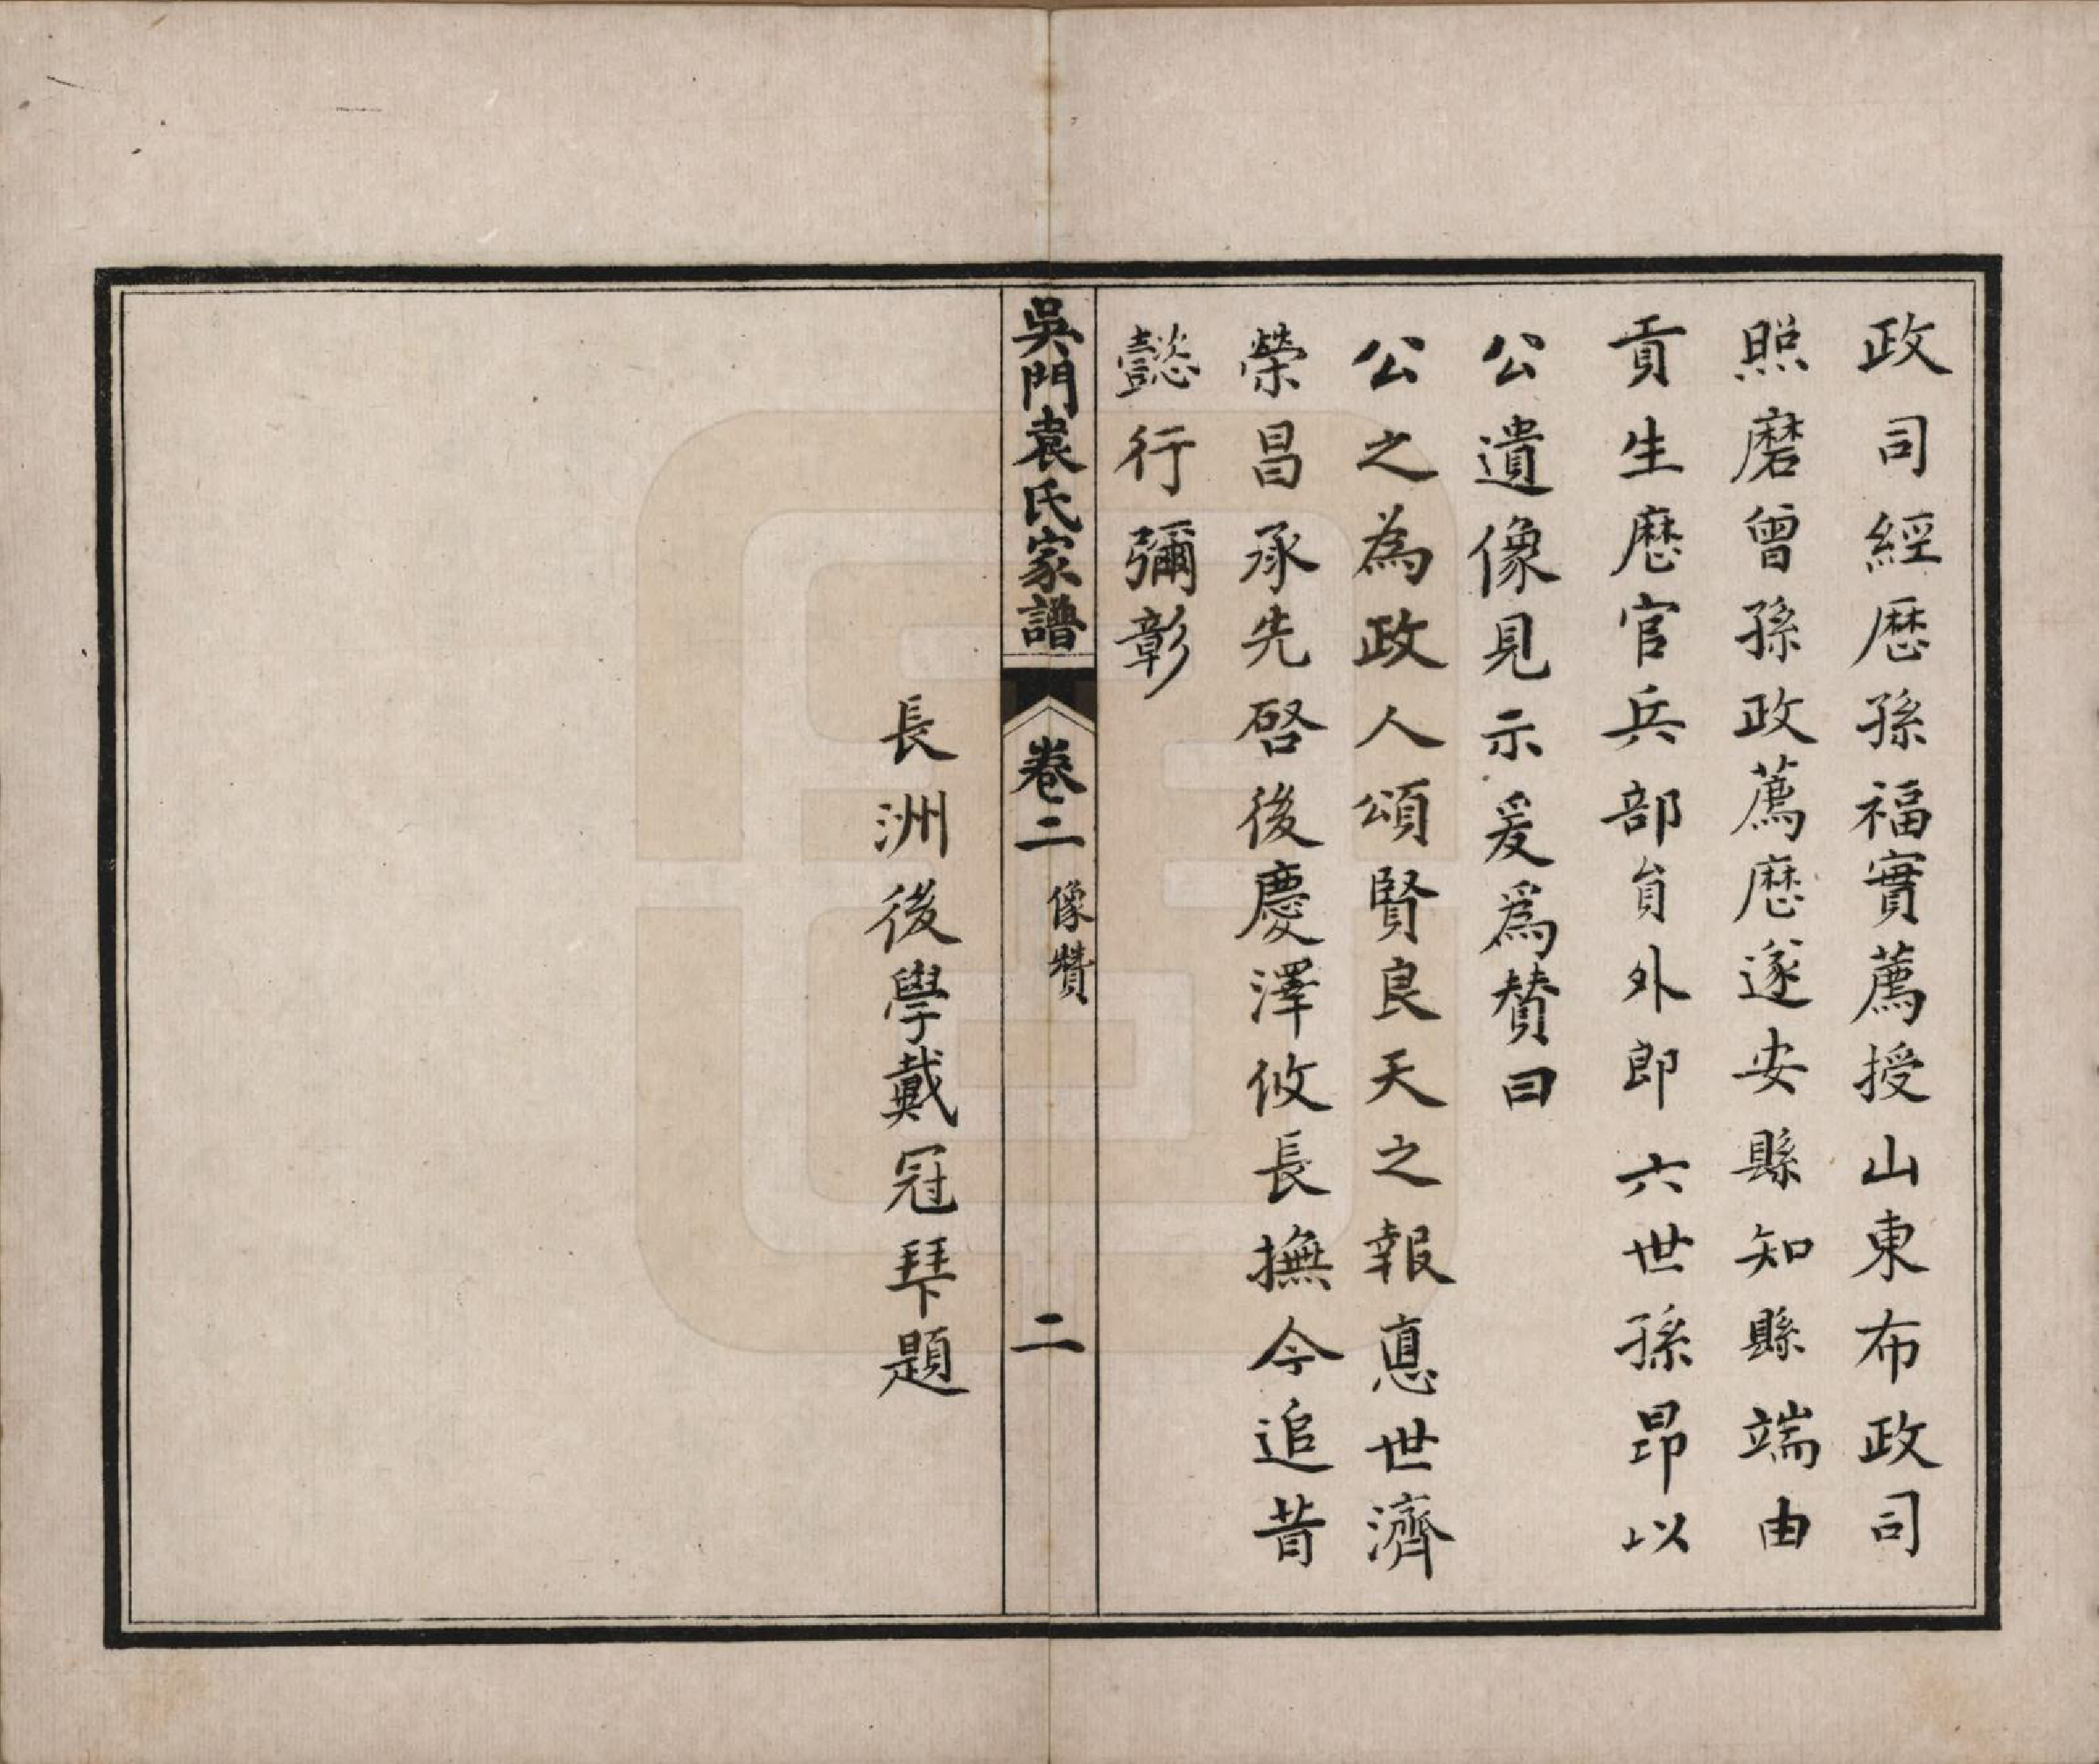 政司經歷孫福實薦授山東布政司
照磨曾孫政薦歷遂安縣知縣端由
貢生歷官兵部員外郎六世孫昂以
公遺像見示爰為贊曰
公之為政人頌賢良天之報悳世濟
榮昌承先啓後慶澤攸長撫今追昔
懿行彌彰
吳門袁氏家譜 卷二 像贊 二
長洲後學戴冠拜題